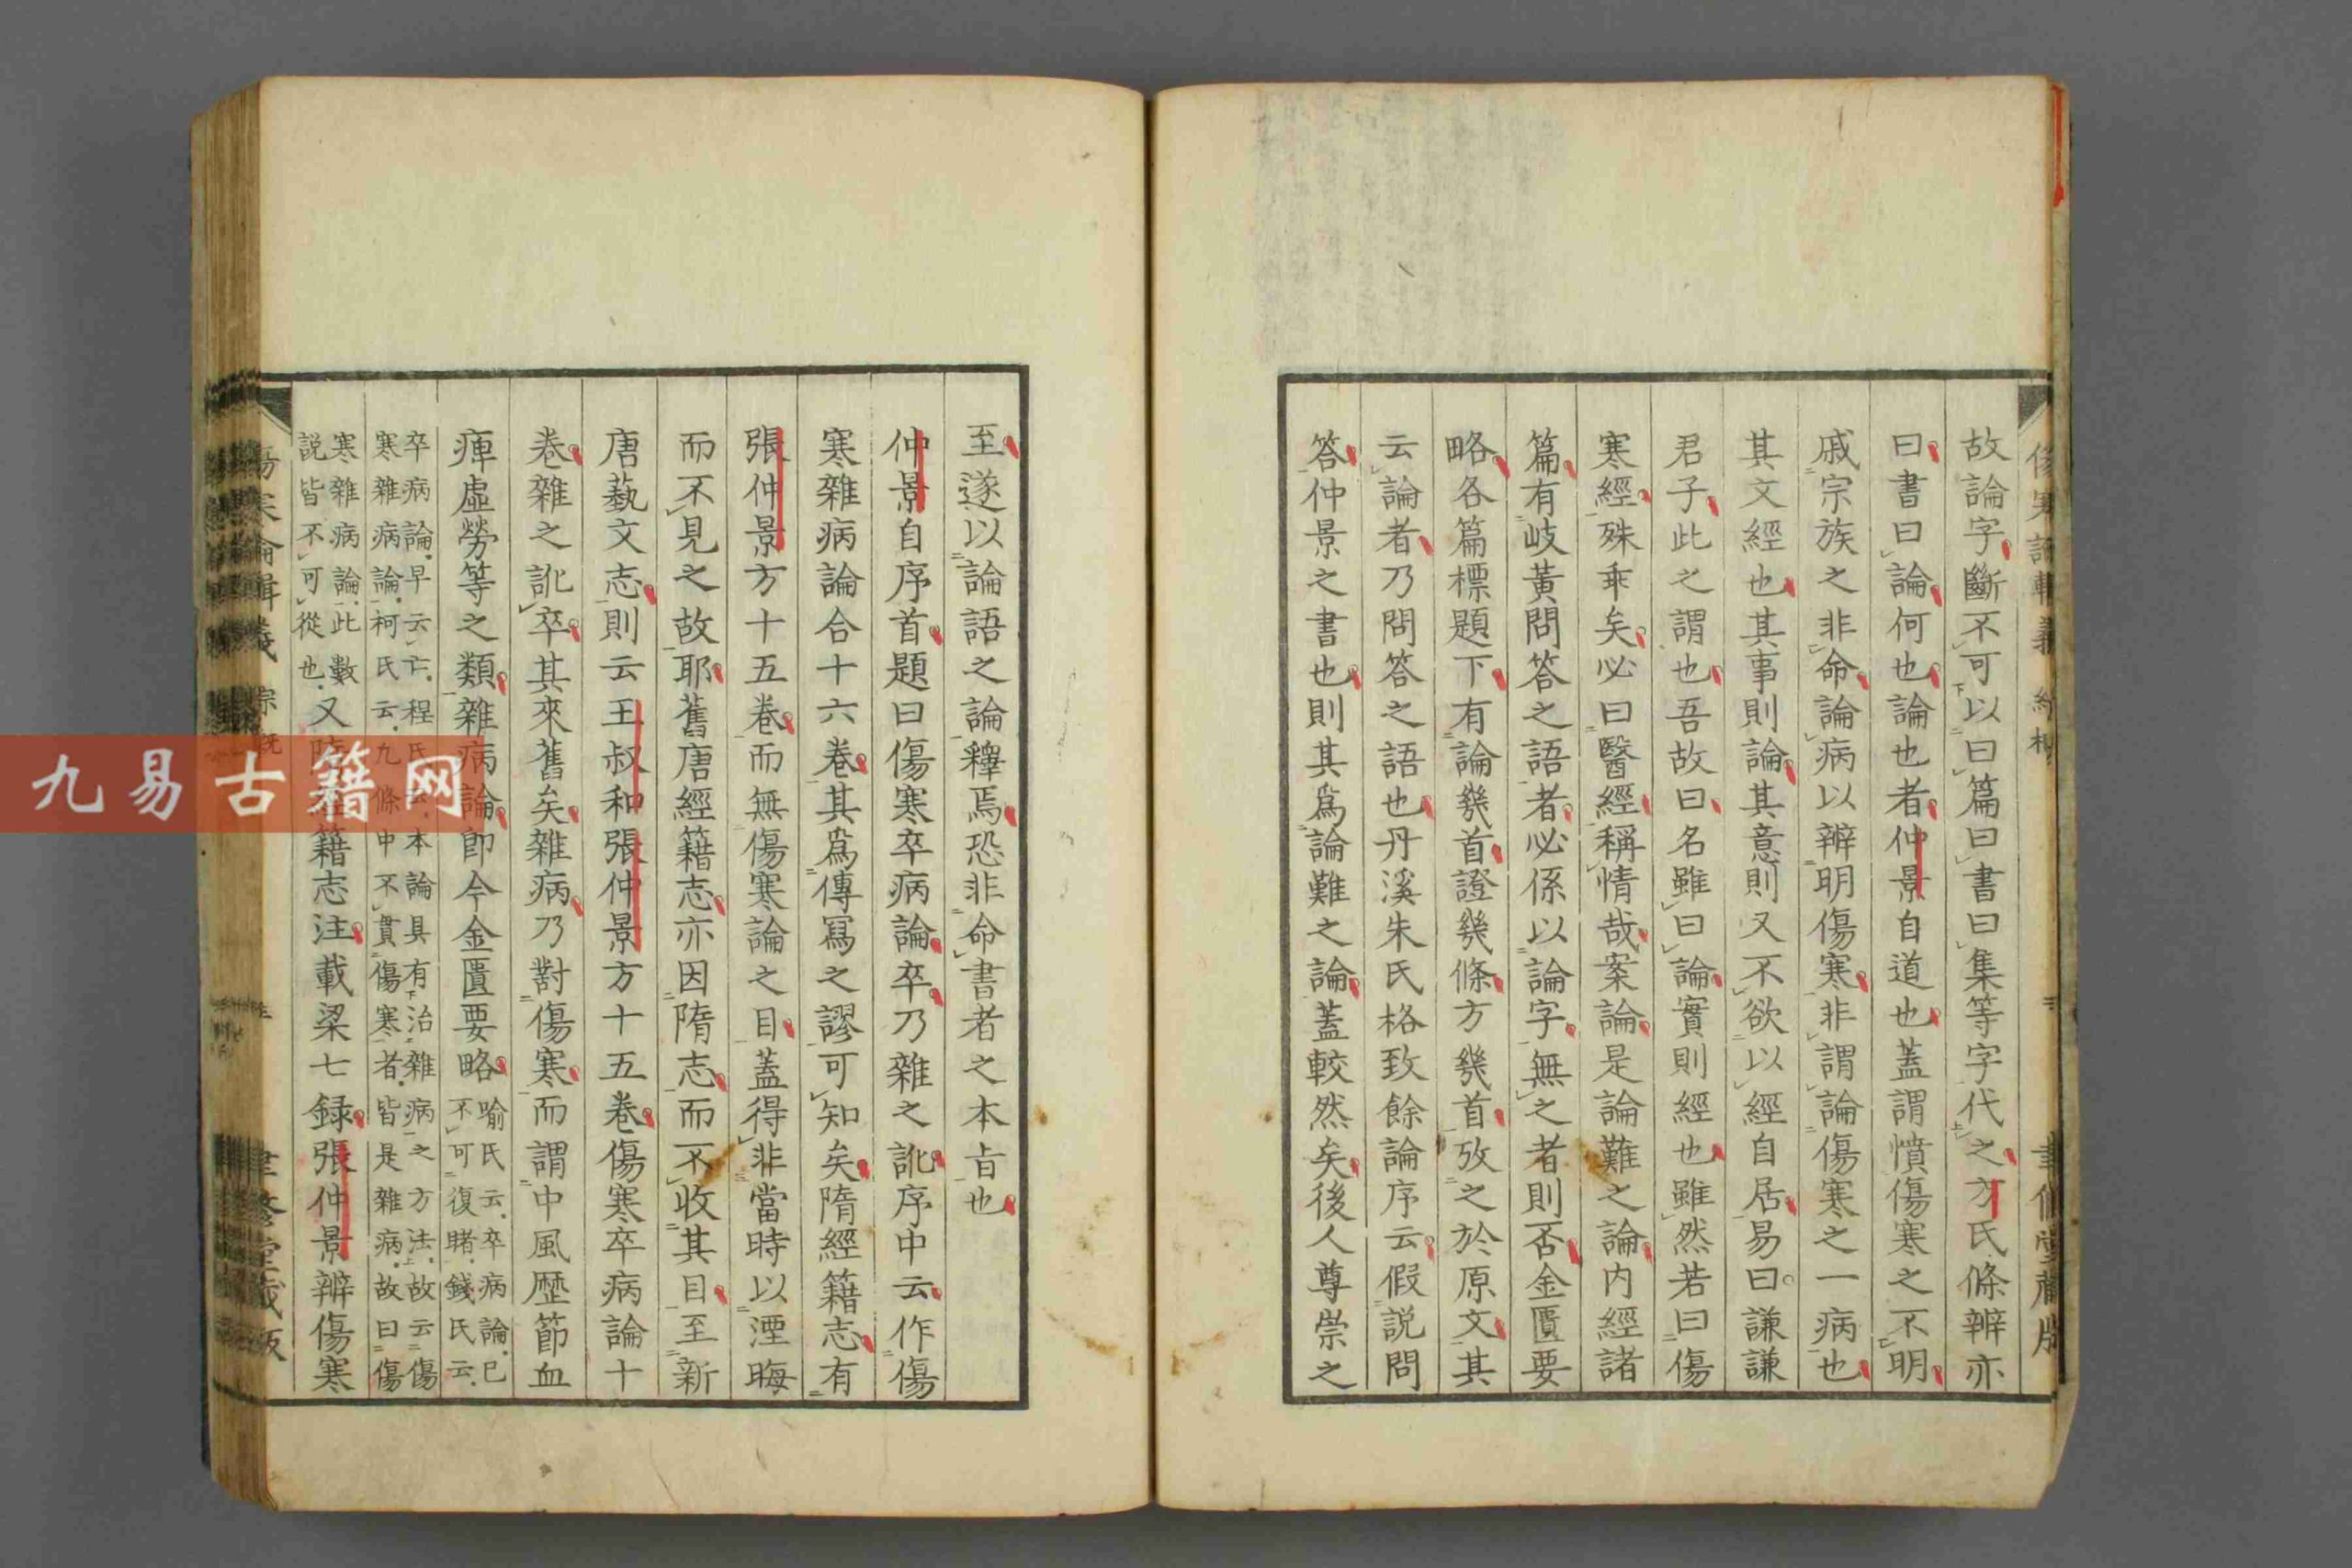 故論字斷不可以曰篇曰書曰集等字代之方氏條辨亦
曰書曰論何也論也者仲景自道也蓋謂憤傷寒之不明
戚宗族之非命論病以辨明傷寒非謂論傷寒之一病也
其文經也其事則論其意則又不欲以經自居易曰謙謙
君子此之謂也吾故曰名雖曰論實則經也雖然若曰傷
寒經殊乖矣必曰醫經稱情哉案論是論難之論內經諸
篇有岐黃問答之語者必係以論字無之者則否金匱要
略各篇標題下有論幾首證幾條方幾首攷之於原文其
云論者乃問答之語也丹溪朱氏格致餘論序云假説問
答仲景之書也則其爲論難之論蓋較然矣後人尊崇之
至遂以論語之論釋焉恐非命書者之本旨也
仲景自序首題曰傷寒卒病論卒乃雜之訛序中云作傷
寒雜病論合十六卷其爲傳寫之謬可知矣隋經籍志有
張仲景方十五卷而無傷寒論之目蓋得非當時以湮晦
而不見之故耶舊唐經籍志亦因隋志而不收其目至新
唐藝文志則云王叔和張仲景方十五卷傷寒卒病論十
卷雜之訛卒其來舊矣雜病乃對傷寒而謂中風歷節血
痺虛勞等之類雜病論即今金匱要略喻氏云卒病論已
不可復睹錢氏云
卒病論早云亡程氏云本論具有治雜病之方法故云傷
寒雜病論柯氏云九條中不貫傷寒者皆是雜病故曰傷
寒雜病論此數
説皆不可從也又隋經籍志注載梁七録張仲景辨傷寒
傷寒論輯義 綜概
聿修堂藏版
九易古籍网